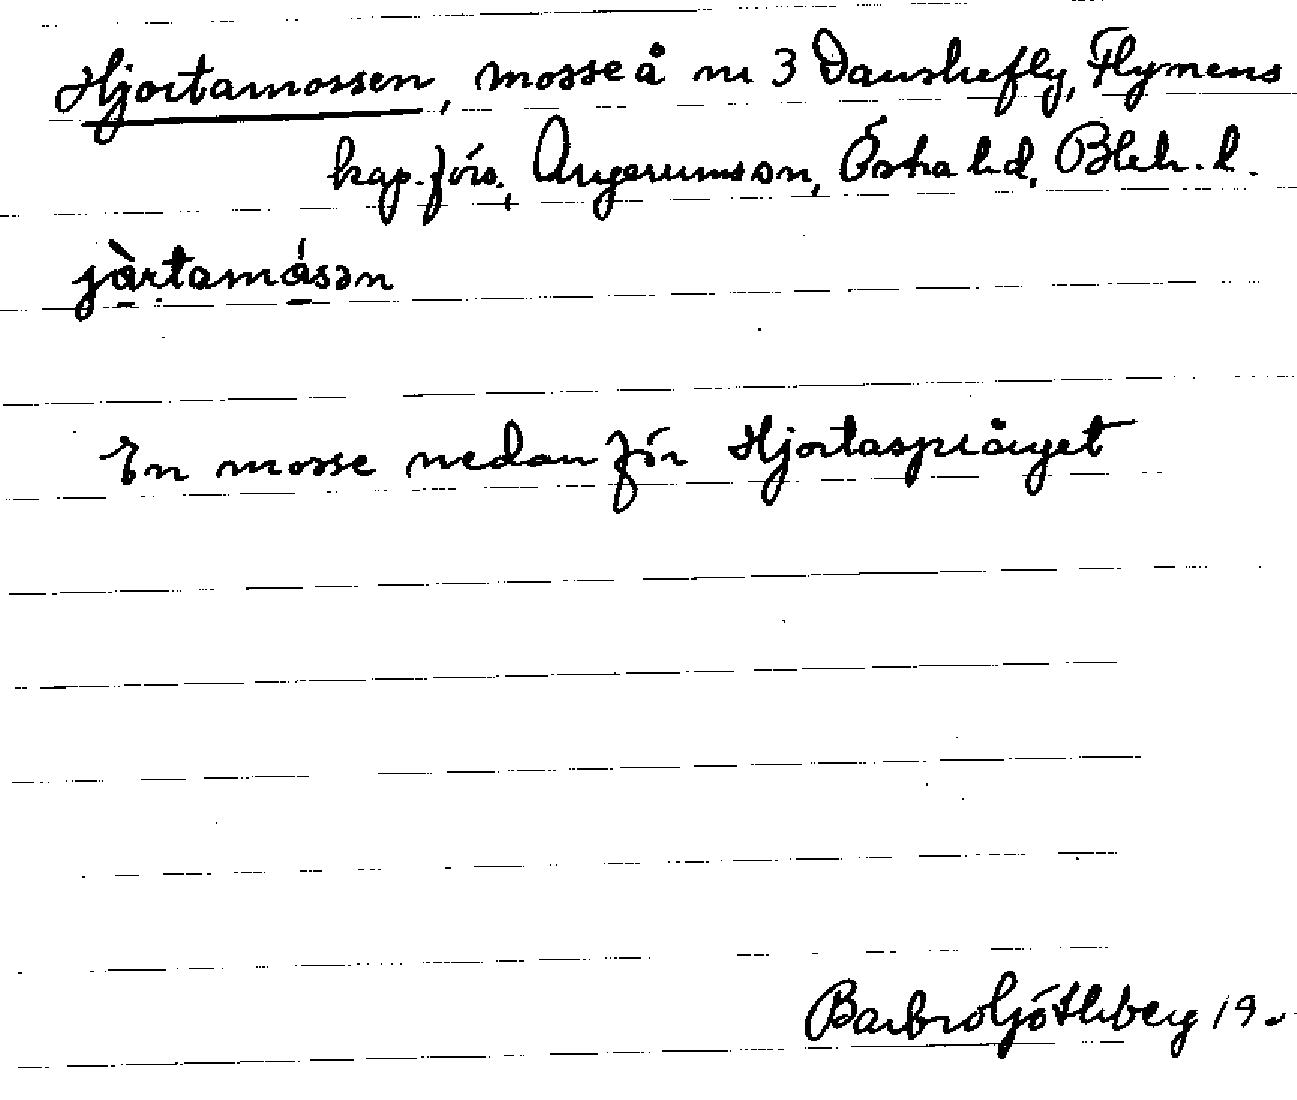 Hjortamossen, mosse å nr 3 Danskefly, Flymens
kap.förs., Augerums sn, Östra hd, Blek. l.
jàrtamásən
En mosse nedanför Hjortaspråŋget
Barbro Göthberg 19